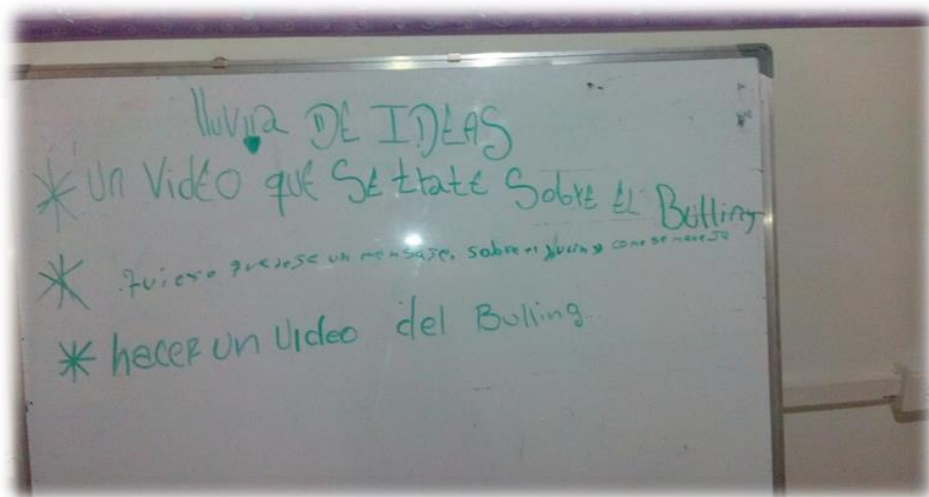 lluvia DE IDEAS
* Un VidEO quE SE tratE SobrE EL Bulling
* quiero que dese un mensaje, sobre el y como se maneja
* hacer un Video del Bulling